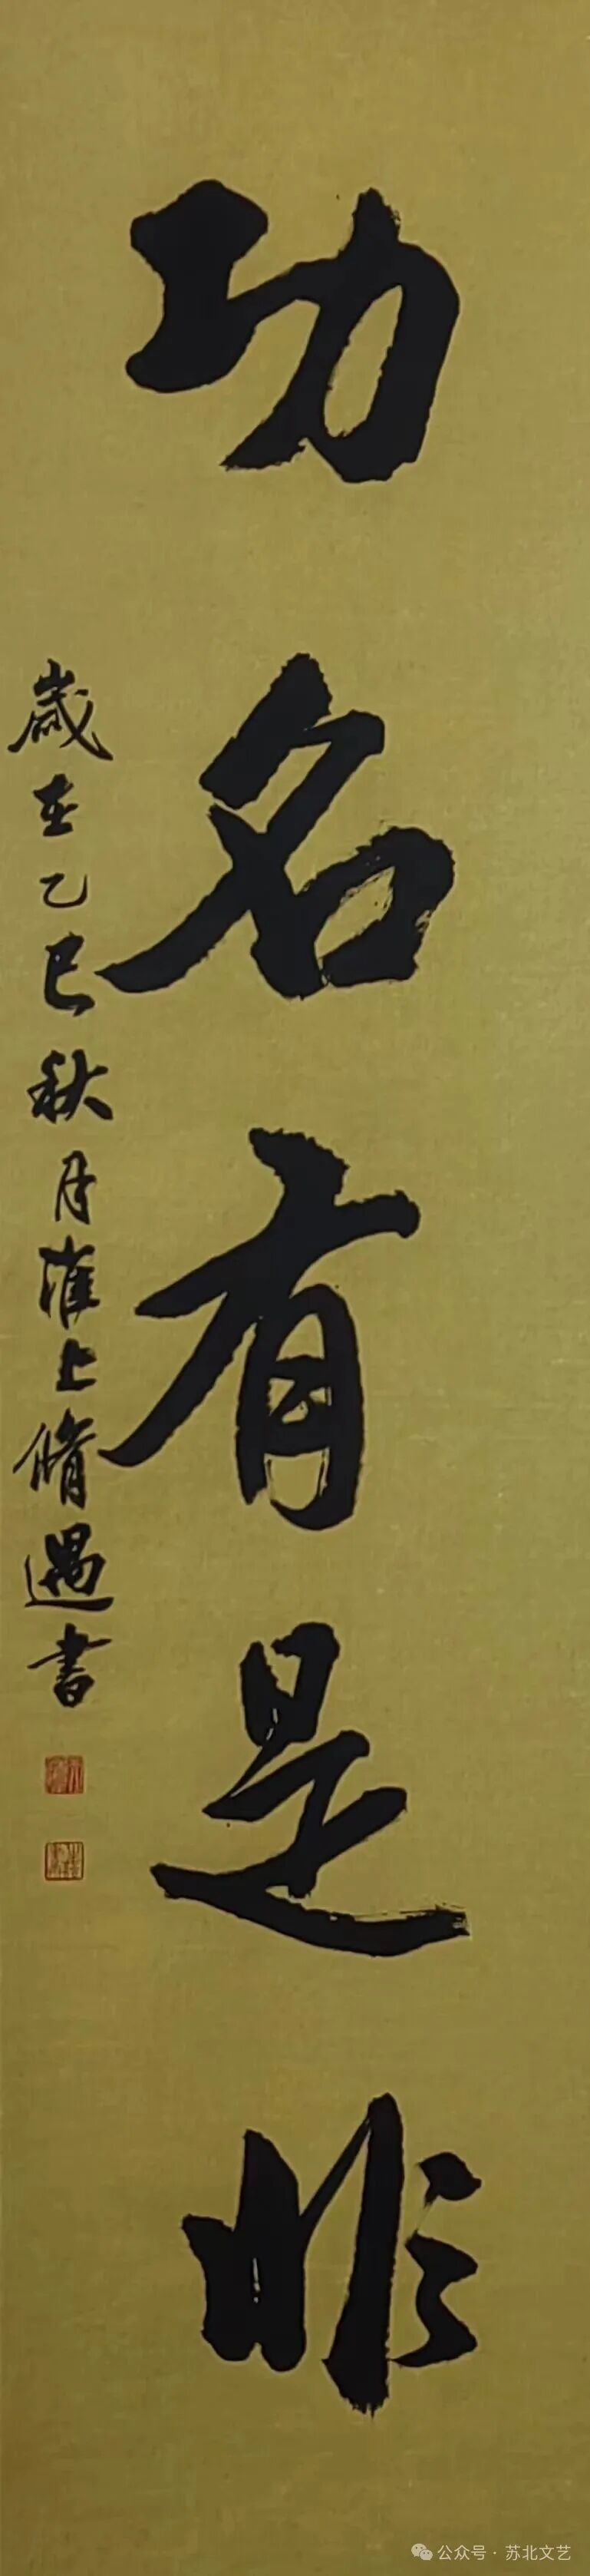 功名有是非
歲在乙巳秋月淮上脩遇書
公众号·苏北文艺